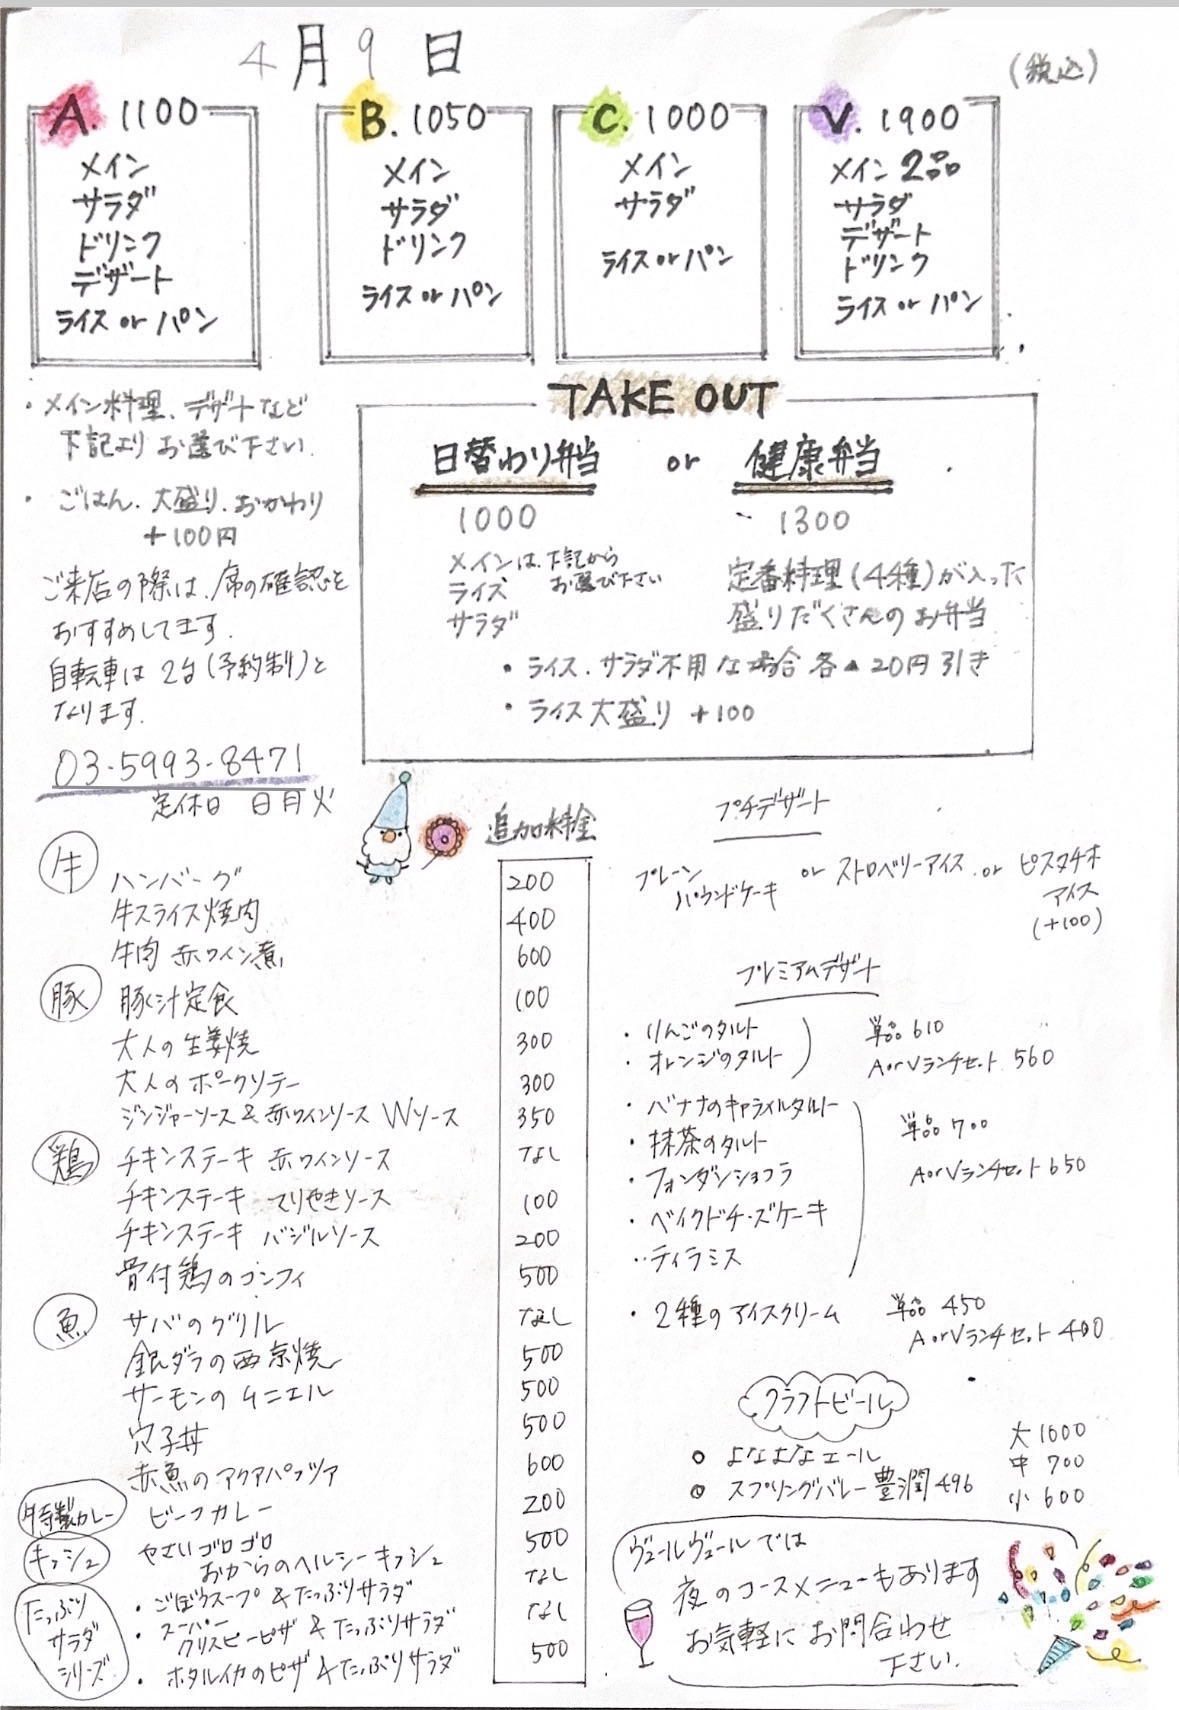 4月9日
(税込)
A. 1100
メイン
サラダ
ドリンク
デザート
ライス or パン
B. 1050
メイン
サラダ
ドリンク
ライス or パン
C. 1000
メイン
サラダ
ライス or パン
V. 1900
メイン 2品
サラダ
デザート
ドリンク
ライス or パン
・メイン料理、デザートなど
下記より お選び下さい.
・ごはん. 大盛り. おかわり
+100円
ご来店の際は、席の確認を
おすすめしてます.
自転車は 2台(予約制)と
なります.
03-5993-8471
定休日 日月火
TAKE OUT
日替わり弁当 or 健康弁当
1000
メインは、下記から
お選び下さい
ライス
サラダ
1300
定番料理(4種)が入った
盛りだくさんのお弁当
・ライス. サラダ不用な場合 各▲20円引き
・ライス大盛り +100
追加料金
牛
ハンバーグ 200
牛スライス焼肉 400
牛肉 赤ワイン煮 600
豚
豚汁定食 100
大人の生姜焼 300
大人のポークソテー 300
ジンジャーソース & 赤ワインソース Wソース 350
鶏
チキンステーキ 赤ワインソース なし
チキンステーキ てりやきソース 100
チキンステーキ バジルソース 200
骨付鶏のコンフィ 500
魚
サバのグリル なし
銀ダラの西京焼 500
サーモンのムニエル 500
穴子丼 500
赤魚のアクアパッツア 600
特製カレー
ビーフカレー 200
やさいゴロゴロ 500
キッシュ
おからのヘルシーキッシュ なし
たっぷり
サラダ
シリーズ
・ごぼうスープ & たっぷりサラダ なし
・スーパー
クリスピーピザ & たっぷりサラダ
・ホタルイカのピザ & たっぷりサラダ 500
プチデザート
プレーン
パウンドケーキ or ストロベリーアイス or ピスタチオ
アイス
(+100)
プレミアムデザート
・りんごのタルト
・オレンジのタルト
単品 610
AorVランチセット 560
・バナナのキャラメルタルト
・抹茶のタルト
・フォンダンショコラ
・ベイクドチーズケーキ
・ティラミス
単品 700
AorVランチセット 650
・2種のアイスクリーム 単品 450
AorVランチセット 400
クラフトビール
よなよなエール
スプリングバレー 豊潤 496
大 1000
中 700
小 600
ヴュールヴュールでは
夜のコースメニューもあります
お気軽にお問合わせ
下さい.